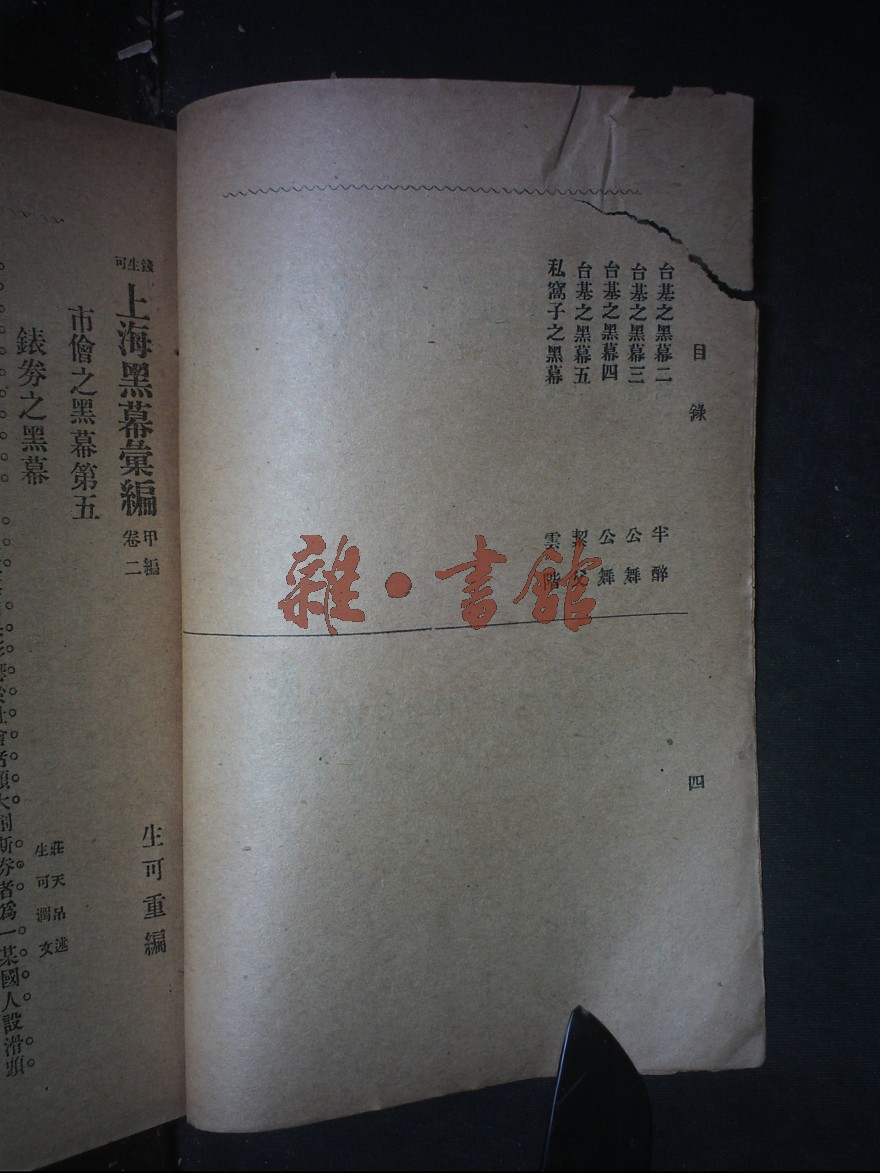 目錄
四
台基之黑幕二 半醉
台基之黑幕三 公舞
台基之黑幕四 公舞
台基之黑幕五
私窩子之黑幕 雲階
雜·書館
錢生可
上海黑幕彙編
甲編
卷二
生可重編
市儈之黑幕第五
錶券之黑幕
莊天吊述
生可潤文
會者頗大創斯券者爲一某國人設滑頭